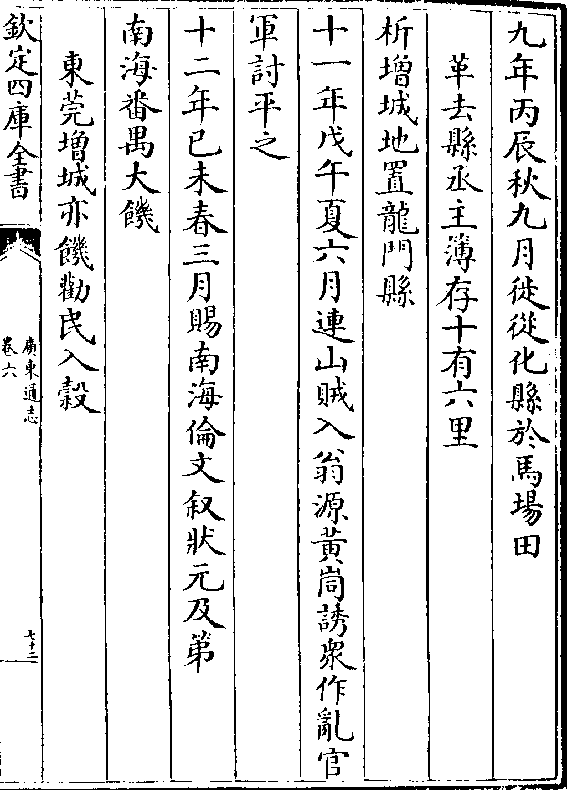 九年丙辰秋九月徙從化縣於馬場田
革去縣丞主薄存十有六里
析增城地置龍門縣
十一年戊午夏六月連山賊入翁源黃峝誘衆作亂官
軍討平之
十二年已未春三月賜南海倫文叙狀元及第
南海番禺大饑
東莞增城亦饑勸民入穀
欽定四庫全書
廣東通志
卷六
七十二